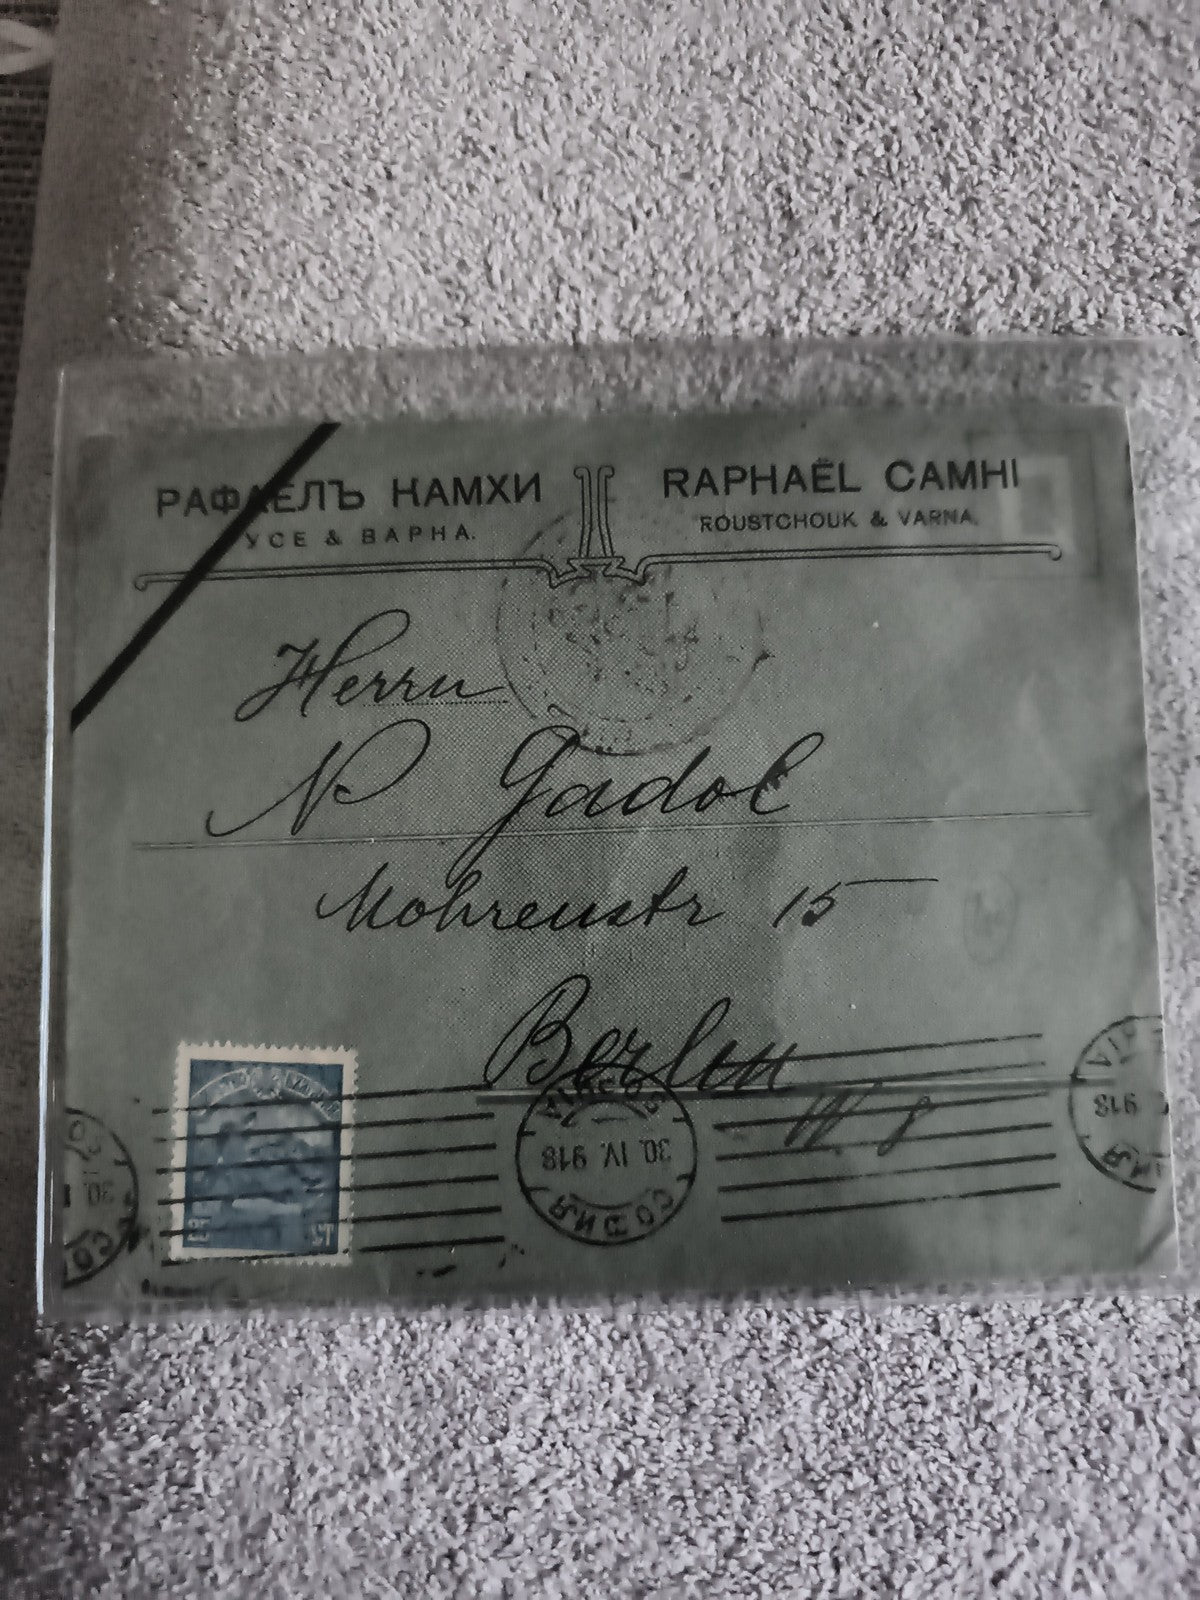 РАФАЕЛЪ КАМХИ
УСЕ & ВАРНА.
RAPHAËL CAMHI
ROUSTCHOUK & VARNA.
Herrn
N Gadol
Mohrenstr 15
Berlin
W 8
СОФИЯ
30. IV. 918
SOPHIA
СО
30. I
25 СТ
918
ИЯ